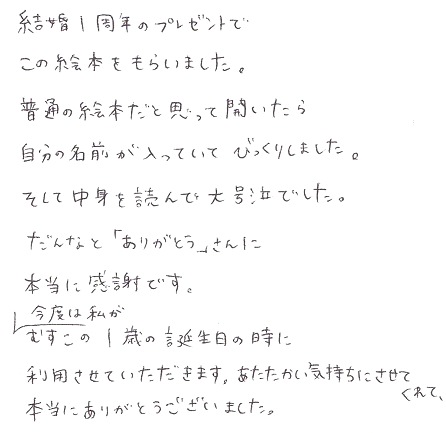 結婚1周年のプレゼントで
この絵本をもらいました。
普通の絵本だと思って開いたら
自分の名前が入っていてびっくりしました。
そして中身を読んで大号泣でした。
だんなと「ありがとう」さんに
本当に感謝です。
今度は私が
むすこの1歳の誕生日の時に
利用させていただきます。あたたかい気持ちにさせてくれて、
本当にありがとうございました。